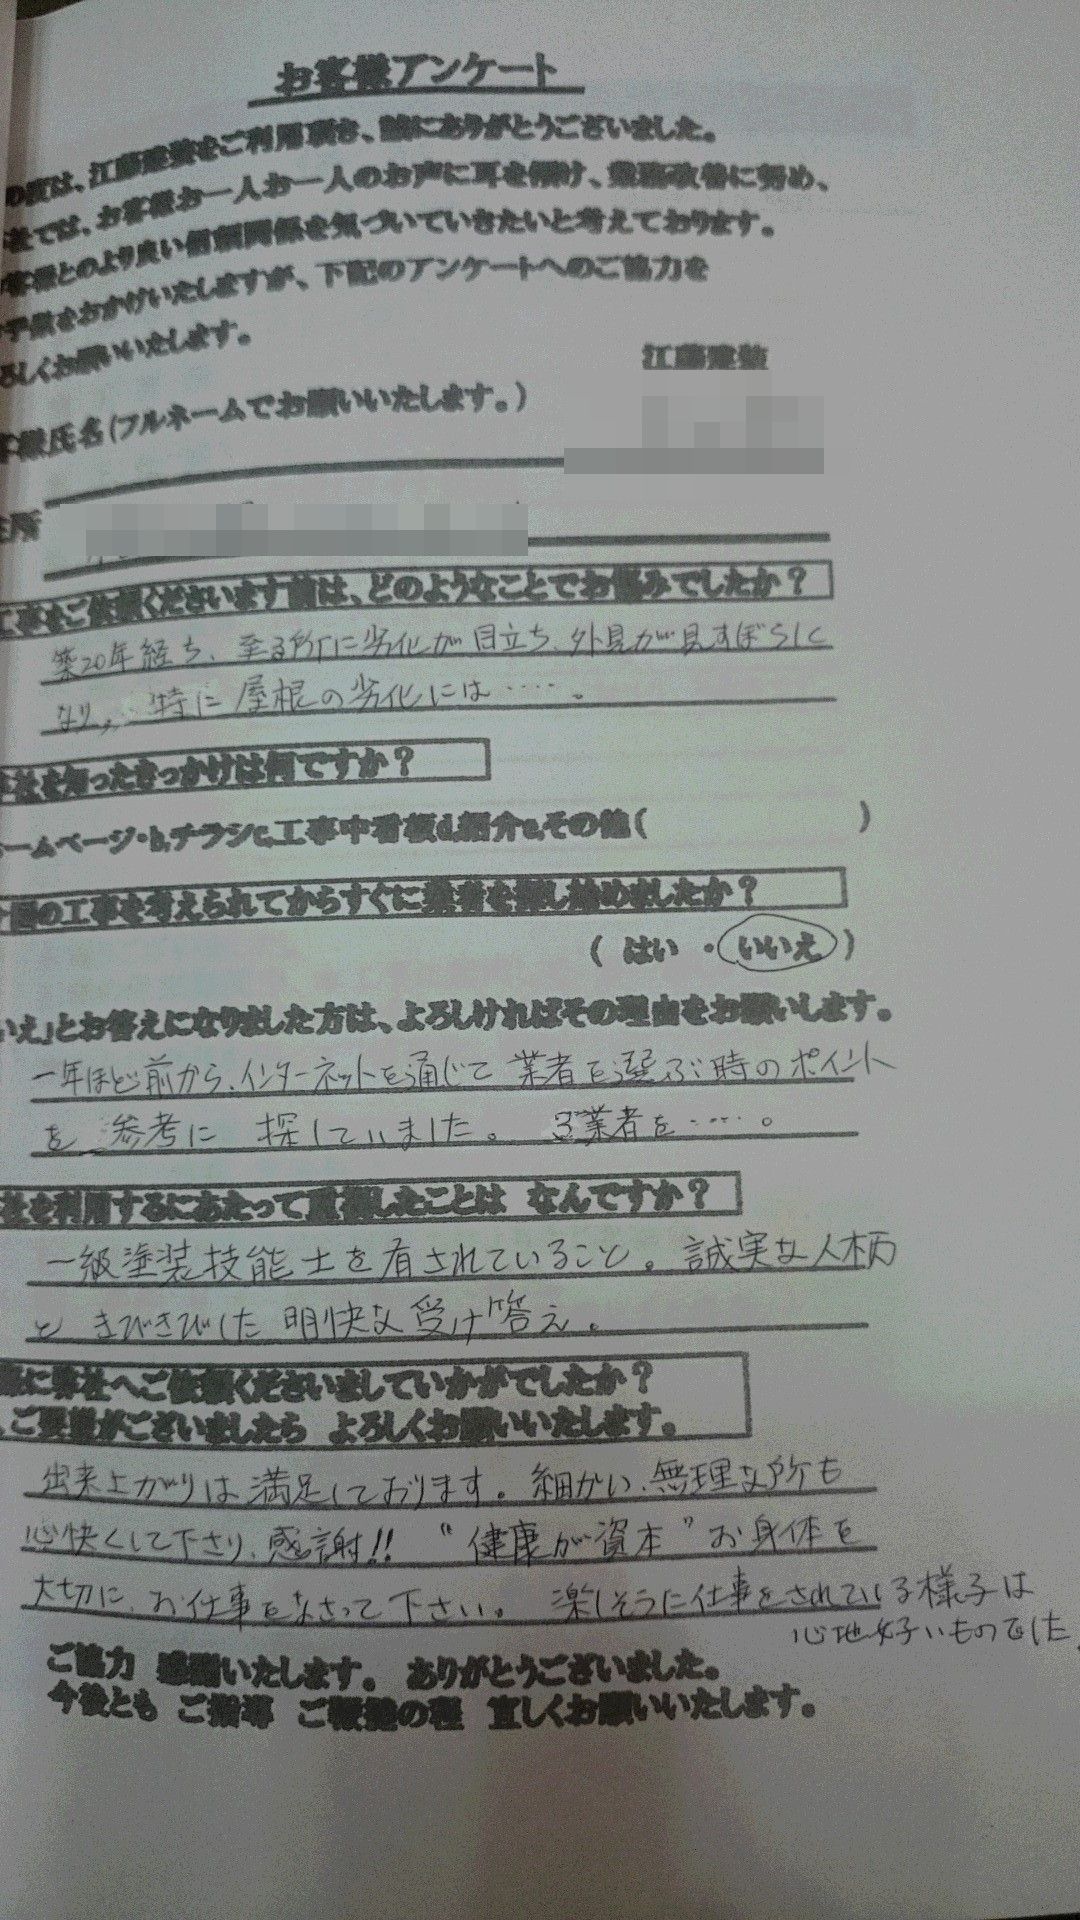 お客様アンケート
の度は、江藤建装をご利用頂き、誠にありがとうございました。
社では、お客様お一人お一人のお声に耳を傾け、業務改善に努め、
客様とのより良い信頼関係を気づいていきたいと考えております。
手数をおかけいたしますが、下記のアンケートへのご協力を
ろしくお願いいたします。
江藤建装
客様氏名(フルネームでお願いいたします。)
住所
工事をご依頼くださいます前は、どのようなことでお悩みでしたか?
築20年経ち、至る所に劣化が目立ち、外見が見すぼらしく
なり、特に屋根の劣化には‥‥‥。
弊社を知ったきっかけは何ですか?
ームページ・b,チラシc,工事中看板d,紹介e,その他( )
今回の工事を考えられてからすぐに業者を探し始めましたか?
( はい ・ いいえ )
いえ」とお答えになりました方は、よろしければその理由をお願いします。
一年ほど前から、インターネットを通じて業者を選ぶ時のポイント
を参考に 探していました。 3業者を‥‥‥。
社を利用するにあたって重視したことは なんですか?
一級塗装技能士を有されていること。誠実な人柄
と きびきびした 明快な受け答え。
際に弊社へご依頼くださいましていかがでしたか?
、ご要望がございましたら よろしくお願いいたします。
出来上がりは満足しております。細かい、無理な所も
心快くして下さり、感謝!! “健康が資本”お身体を
大切に、お仕事をなさって下さい。 楽しそうに仕事をされている様子は
心地好いものでした。
ご協力 感謝いたします。 ありがとうございました。
今後とも ご指導 ご鞭撻の程 宜しくお願いいたします。